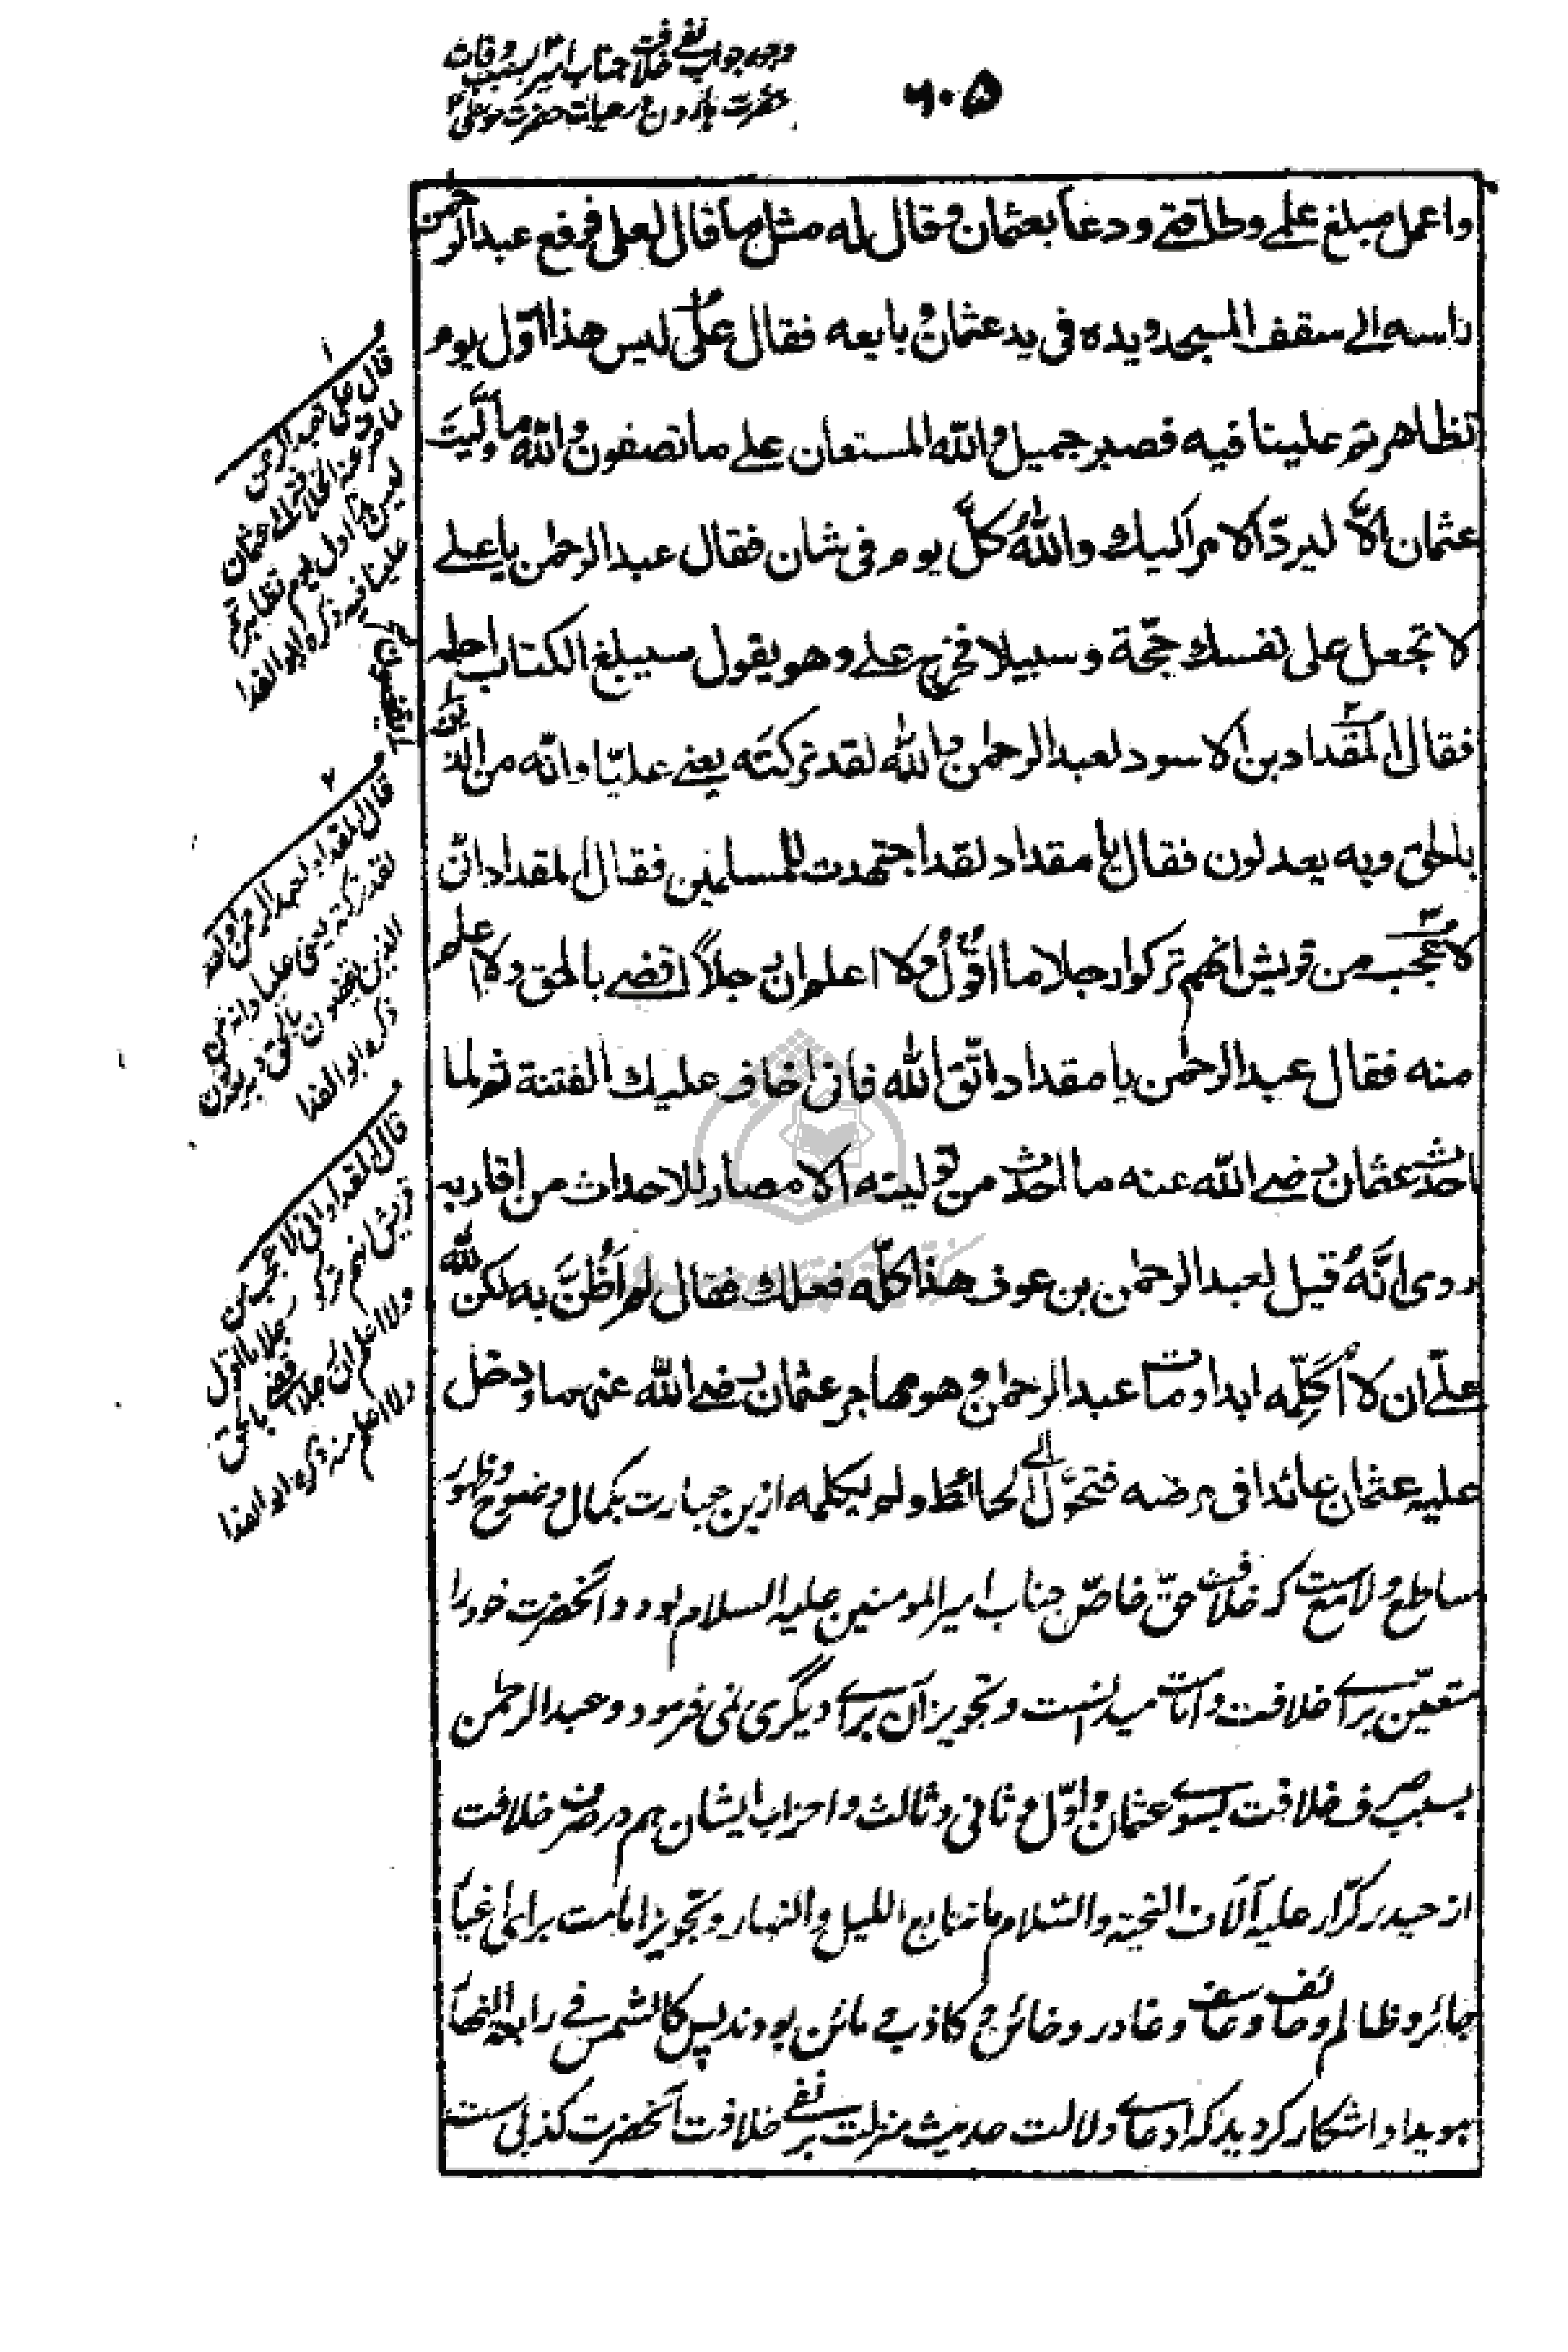 وجوه جواب نفی خلافت جناب امیر بسبب وفات
حضرت هارون در حیات حضرت موسی
۶۰۵
واعمل مبلغ علمي وطاقتي ودعا بعثمان وقال له مثل ما قال لعلي فرفع عبد الرحمن
راسه الى سقف المسجد ويده في يد عثمان وبايعه فقال علي ليس هذا اول يوم
تظاهرتم علينا فيه فصبر جميل والله المستعان على ما تصفون والله ما وليت
عثمان الا ليرد الامر اليك والله كل يوم في شان فقال عبد الرحمن يا علي
لا تجعل على نفسك حجة وسبيلا فخرج علي وهو يقول سيبلغ الكتاب اجله
فقال المقداد بن الاسود لعبد الرحمن والله لقد تركته يعني عليا وانه من الذين
بالحق وبه يعدلون فقال يا مقداد لقد اجتهدت للمسلمين فقال المقداد اني
لاعجب من قريش انهم تركوا رجلا ما اقول ولا اعلم ان رجلا اقضى بالحق ولا اعلم
منه فقال عبد الرحمن يا مقداد اتق الله فاني اخاف عليك الفتنة ثم لما
احدث عثمان رضي الله عنه ما احدث من توليته الامصار للاحداث من اقاربه
روى انه قيل لعبد الرحمن بن عوف هذا كله فعلك فقال لم اظن به لكن لله
علي ان لا اكلمه ابدا ومات عبد الرحمن وهو مهاجر عثمان رضي الله عنهما ودخل
عليه عثمان عائدا في مرضه فتحول الى الحائط ولم يكلمه ازین عبارت بکمال وضوح وظهور
ساطع ولامع ست که خلافت حق خاص جناب امیر المومنین علیه السلام بود و آنحضرت خود را
متعین برای خلافت وامامت میدانست وتجویز آن برای دیگری نمی فرمود وعبد الرحمن
بسبب صرف خلافت بسوی عثمان واول وثانی وثالث واحزاب ایشان هم در صرف خلافت
از حیدر کرار علیه آلاف التحیة والسلام ما تتابع اللیل والنهار وتجویز امامت برای اغیار
جائر وظالم وحائف وعاسف وغادر وخائن وکاذب ومائن بودند پس کالشمس فی رابعة النهار
هویدا و اشکار گردید که ادعای دلالت حدیث منزلت بر نفی خلافت آنحضرت کذبی ست
۱
قال علی لعبد الرحمن
لما صرف عنه الخلافة الی عثمان
لیس هذا اول یوم تظاهرتم
علینا فیه ذکره ابو الفدا
یقضون
۲
قال المقداد لعبد الرحمن والله
لقد ترکته یعنی علیا وانه من
الذین یقضون بالحق وبه یعدلون
ذکره ابو الفدا
قال المقداد وانی لاعجب من
قریش انهم ترکوا رجلا ما اقول
ولا اعلم ان رجلا اقضی بالحق
ولا اعلم منه ذکره ابو الفدا